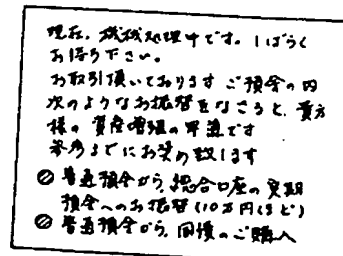 現在、機械処理中です。しばらく
お待ち下さい。
お取引頂いております ご預金の内
次のようなお振替をなさると、貴方
様の 資産増強の早道です
参考までにお奨め致します
普通預金から、総合口座の定期
預金へのお振替(10万円ほど)
普通預金から、国債のご購入